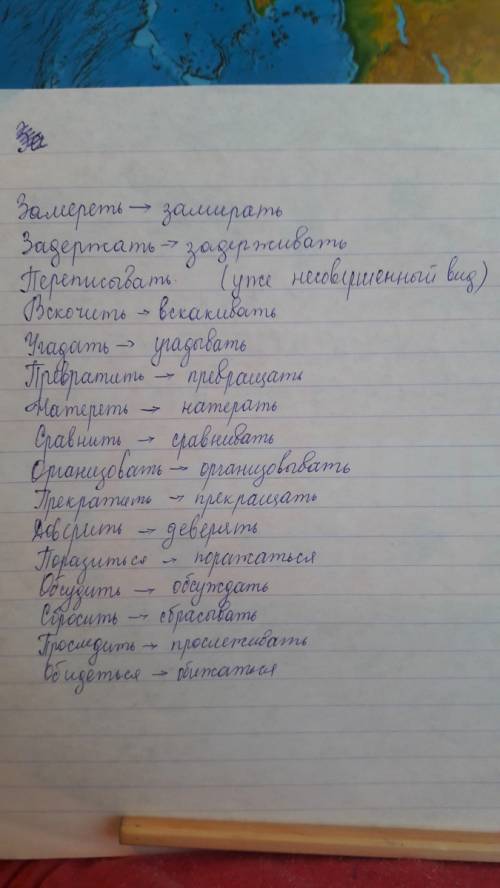 Замереть → замирать
Задержать → задерживать
Переписывать. (уже несовершенный вид)
Вскочить → вскакивать
Угадать → угадывать
Превратить → превращать
Натереть → натерать
Сравнить → сравнивать
Организовать → организовывать
Прекратить → прекращать
Доверить → деверять
Поразиться → поражаться
Обсудить → обсуждать
Сбросить → сбрасывать
Проследить → прослеживать
Обидеться → обижаться